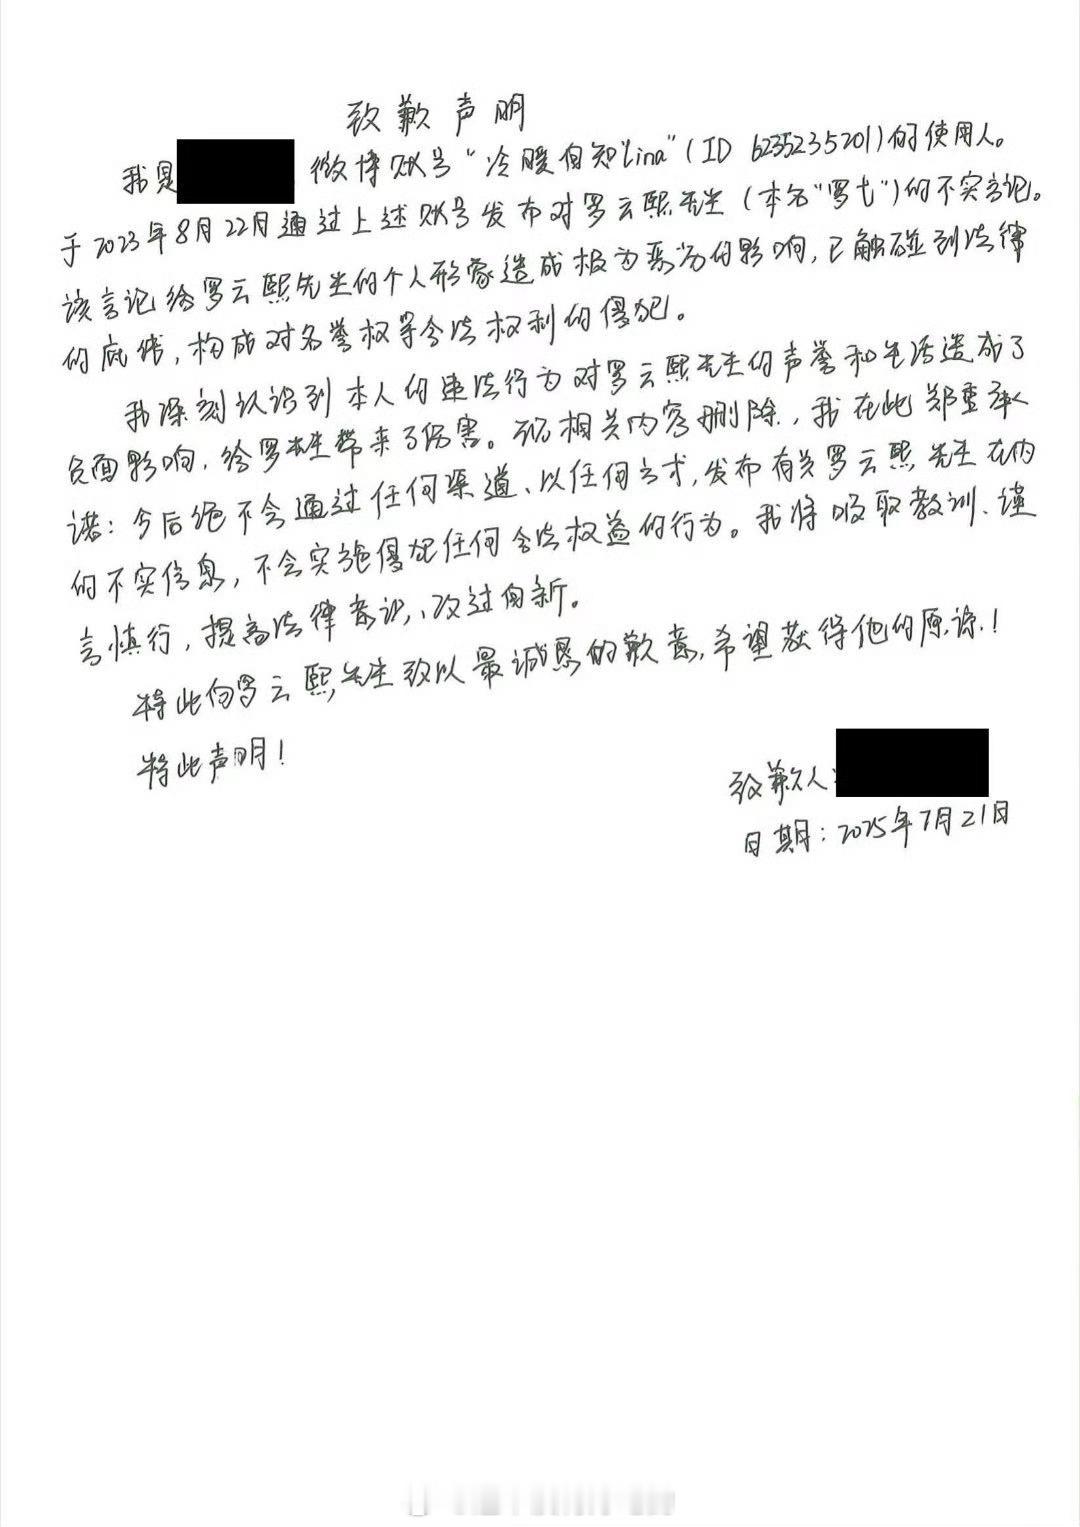 致歉声明
我是 微博账号“冷暖自知lina”(ID 6235235201)的使用人。
于2023年8月22月通过上述账号发布对罗云熙先生(本名“罗弋”)的不实言论。
该言论给罗云熙先生的个人形象造成极为恶劣的影响，已触碰到法律
的底线，构成对名誉权等合法权利的侵犯。
我深刻认识到本人的违法行为对罗云熙先生的声誉和生活造成了
负面影响，给罗先生带来了伤害。现相关内容删除，我在此郑重承
诺：今后绝不会通过任何渠道、以任何方式，发布有关罗云熙先生在内
的不实信息，不会实施侵犯任何合法权益的行为。我将吸取教训、谨
言慎行，提高法律意识、改过自新。
特此向罗云熙先生致以最诚恳的歉意，希望获得他的原谅！
特此声明！
致歉人：
日期：2025年7月21日